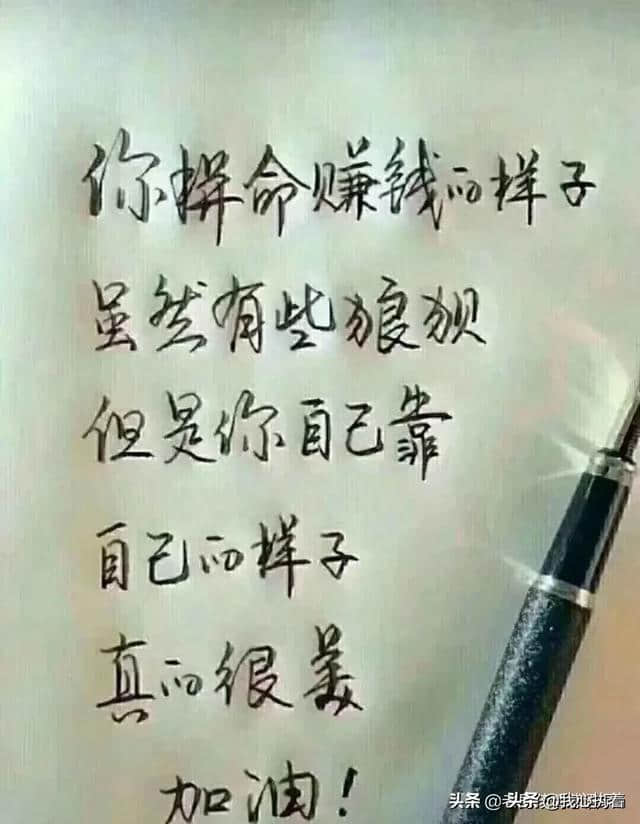 你拼命赚钱的样子
虽然有些狼狈
但是你自己靠
自己的样子
真的很美
加油！
头条
头条